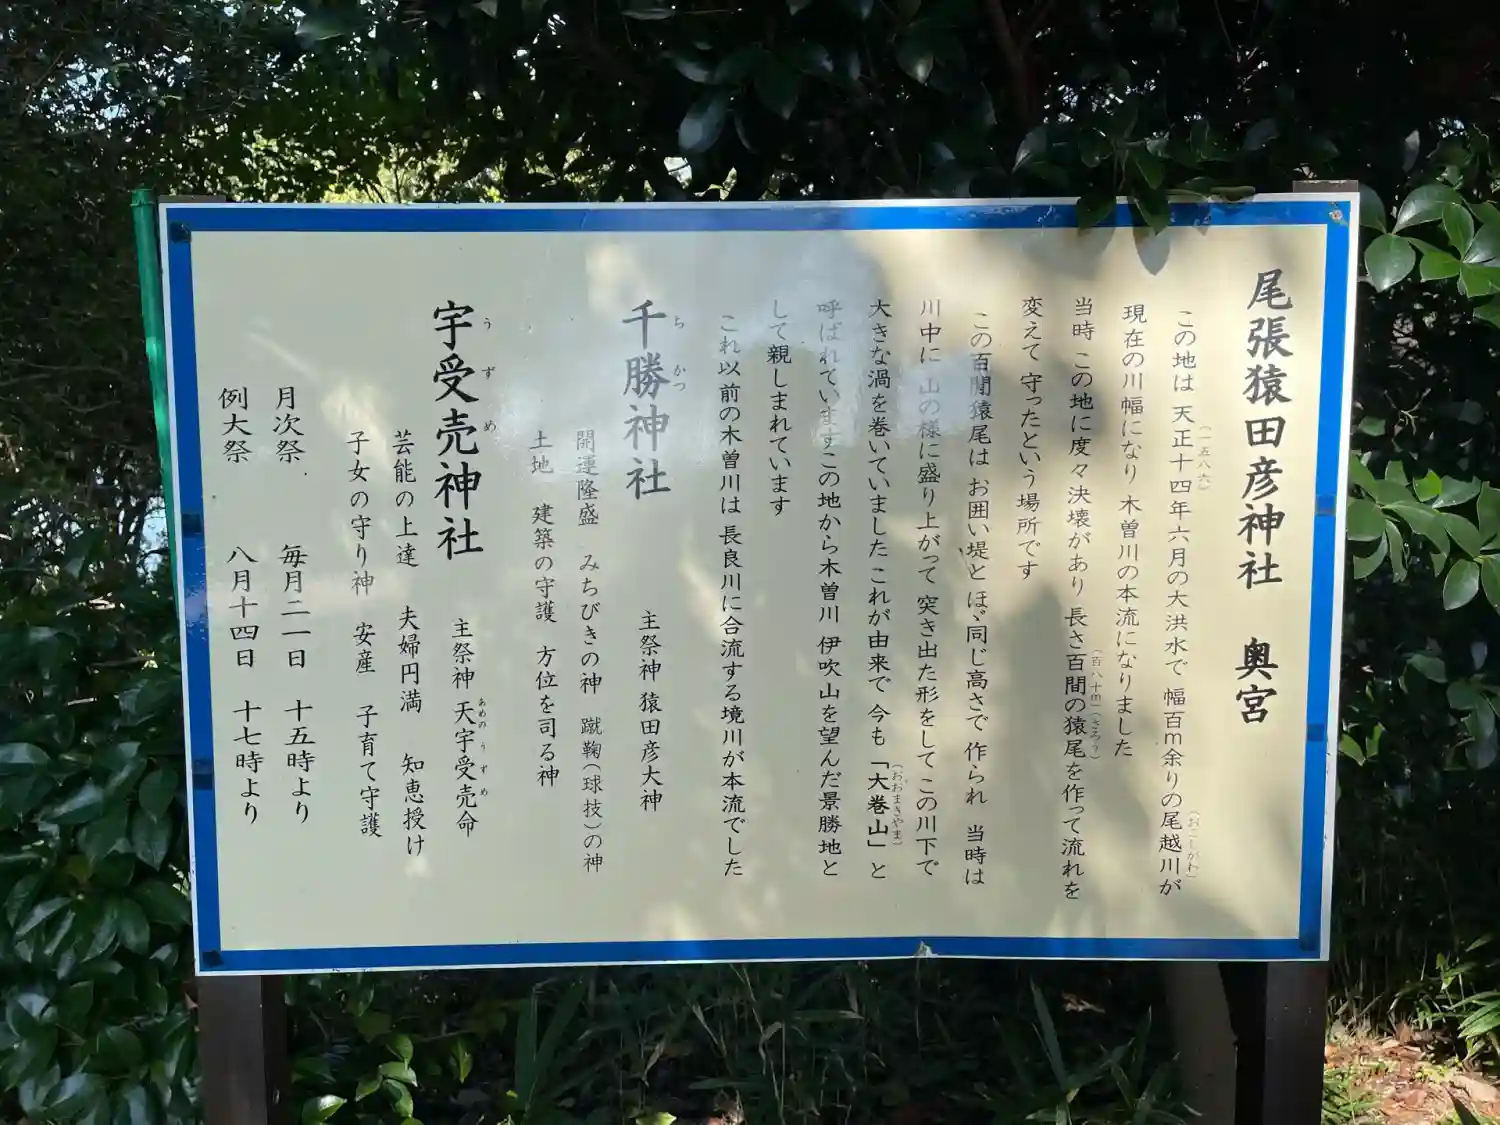 尾張猿田彦神社 奥宮
この地は 天正十四年六月の大洪水で 幅百m余りの尾越川が
(一五八六)
(おこしがわ)
現在の川幅になり 木曽川の本流になりました
当時 この地に度々決壊があり 長さ百間の猿尾を作って流れを
(百八十m)(さろう)
変えて 守ったという場所です
この百間猿尾は お囲い堤と ほゞ同じ高さで 作られ 当時は
川中に 山の様に盛り上がって 突き出た形をして この川下で
大きな渦を巻いていました これが由来で 今も「大巻山」と
(おおまきやま)
呼ばれています この地から木曽川 伊吹山を望んだ景勝地と
して親しまれています
これ以前の木曽川は 長良川に合流する境川が本流でした
千勝神社 主祭神 猿田彦大神
ち かつ
開運隆盛 みちびきの神 蹴鞠(球技)の神
土地 建築の守護 方位を司る神
宇受売神社 主祭神 天宇受売命
う ず め
あめの う ず め
芸能の上達 夫婦円満 知恵授け
子女の守り神 安産 子育て守護
月次祭 毎月二一日 十五時より
例大祭 八月十四日 十七時より